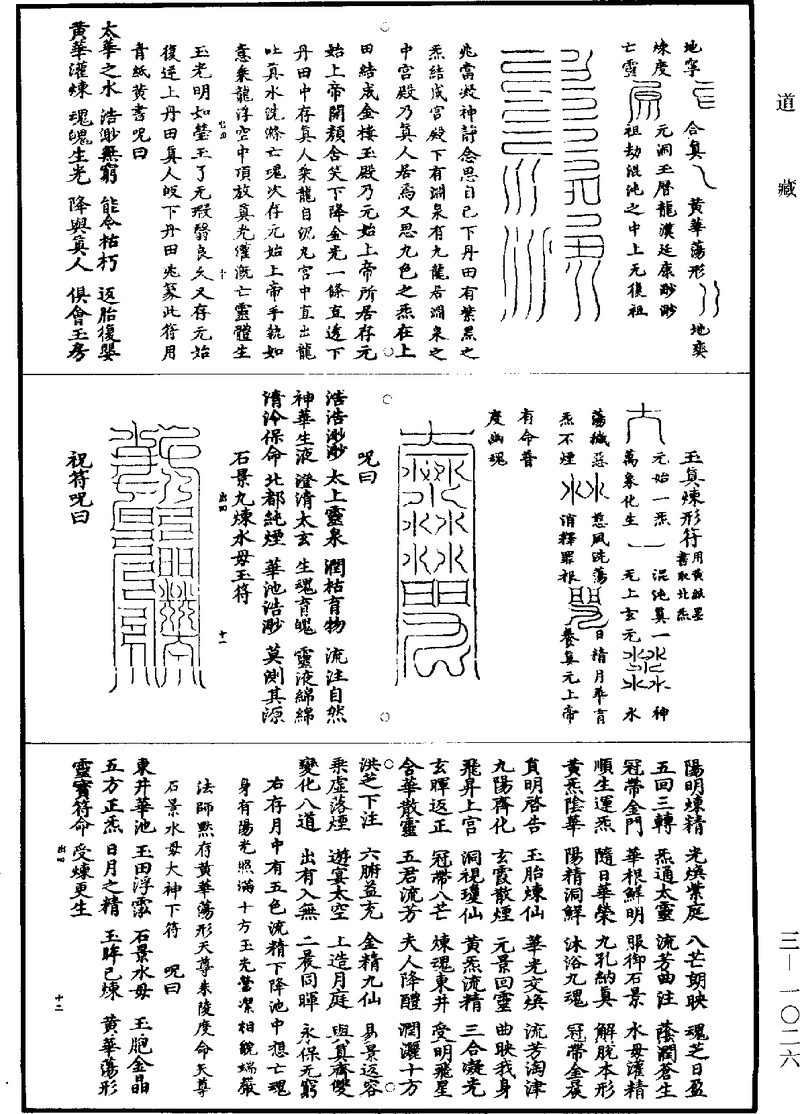 道藏
三—一〇二六
地寧 合真 黄華蕩形 地奕
煉度 元洞玉曆龍漢延康眇眇
亡靈 祖劫混沌之中上无復祖
兆當凝神靜念思自己下丹田有紫黑之
炁結成宫殿下有淵泉有九龍居淵泉之
中宫殿乃真人居焉又思九色之炁在上
田結成金樓玉殿乃元始上帝所居存元
始上帝開顔含笑下降金光一條直透下
丹田中存真人乘龍自泥丸宫中直出龍
吐真水洗滌亡魂次存元始上帝手執如
意乘龍浮空中頂放真光灌溉亡靈體生
玉光明如瑩玉了无瑕翳良久又存元始
復逆上丹田真人皈下丹田兆篆此符用
青紙黄書呪曰
太華之水 浩渺無窮 能令枯朽 返胎復嬰
黄華灌煉 魂魄生光 降與真人 俱會玉房
玉真煉形符用黄紙墨書取北炁
元始一炁 混沌真一 神
萬象化生 无上玄元 水
蕩穢惡 慈風洗蕩 日精月華育
炁不煙 消釋罪根 養真元上帝
有命普
度幽魂
呪曰
浩浩渺渺 太上靈泉 潤枯育物 流注自然
神華生液 澄清太玄 生魂育魄 靈液綿綿
清泠保命 北都純煙 華池浩渺 莫測其源
石景九煉水母玉符
十一
祝符呪曰
陽明煉精 光煥紫庭 八芒朗映 魂芝日盈
五回三轉 炁通太靈 流芳曲注 蔭潤蒼生
冠帶金門 華根鮮明 服御石景 水母灌精
順生運炁 隨日華榮 九孔納真 解脱本形
黄炁陰華 陽精洞鮮 沐浴九魂 冠帶金晨
真明啓告 玉胎煉仙 華光交煥 流芳淘津
九陽齊化 玄霞散煙 元景回靈 曲映我身
飛昇上宫 洞視瓊仙 黄炁流精 三合凝光
玄暉返正 冠帶八芒 煉魂東井 受明飛星
含華散靈 五君流芳 夫人降醴 潤灑十方
洪芝下注 六腑益充 金精九仙 易景返容
乘虚落煙 遊宴太空 上造月庭 與真齊雙
變化八道 出有入無 二晨同暉 永保无窮
右存月中有五色流精下降池中想亡魂
身有陽光照滿十方玉光瑩潔相貌端嚴
法師默存黄華蕩形天尊朱陵度命天尊
石景水母大神下符 呪曰
東井華池 玉田浮霐 石景水母 玉胞金晶
五方正炁 日月之精 玉眸已煉 黄華蕩形
靈寶符命 受煉更生
十二